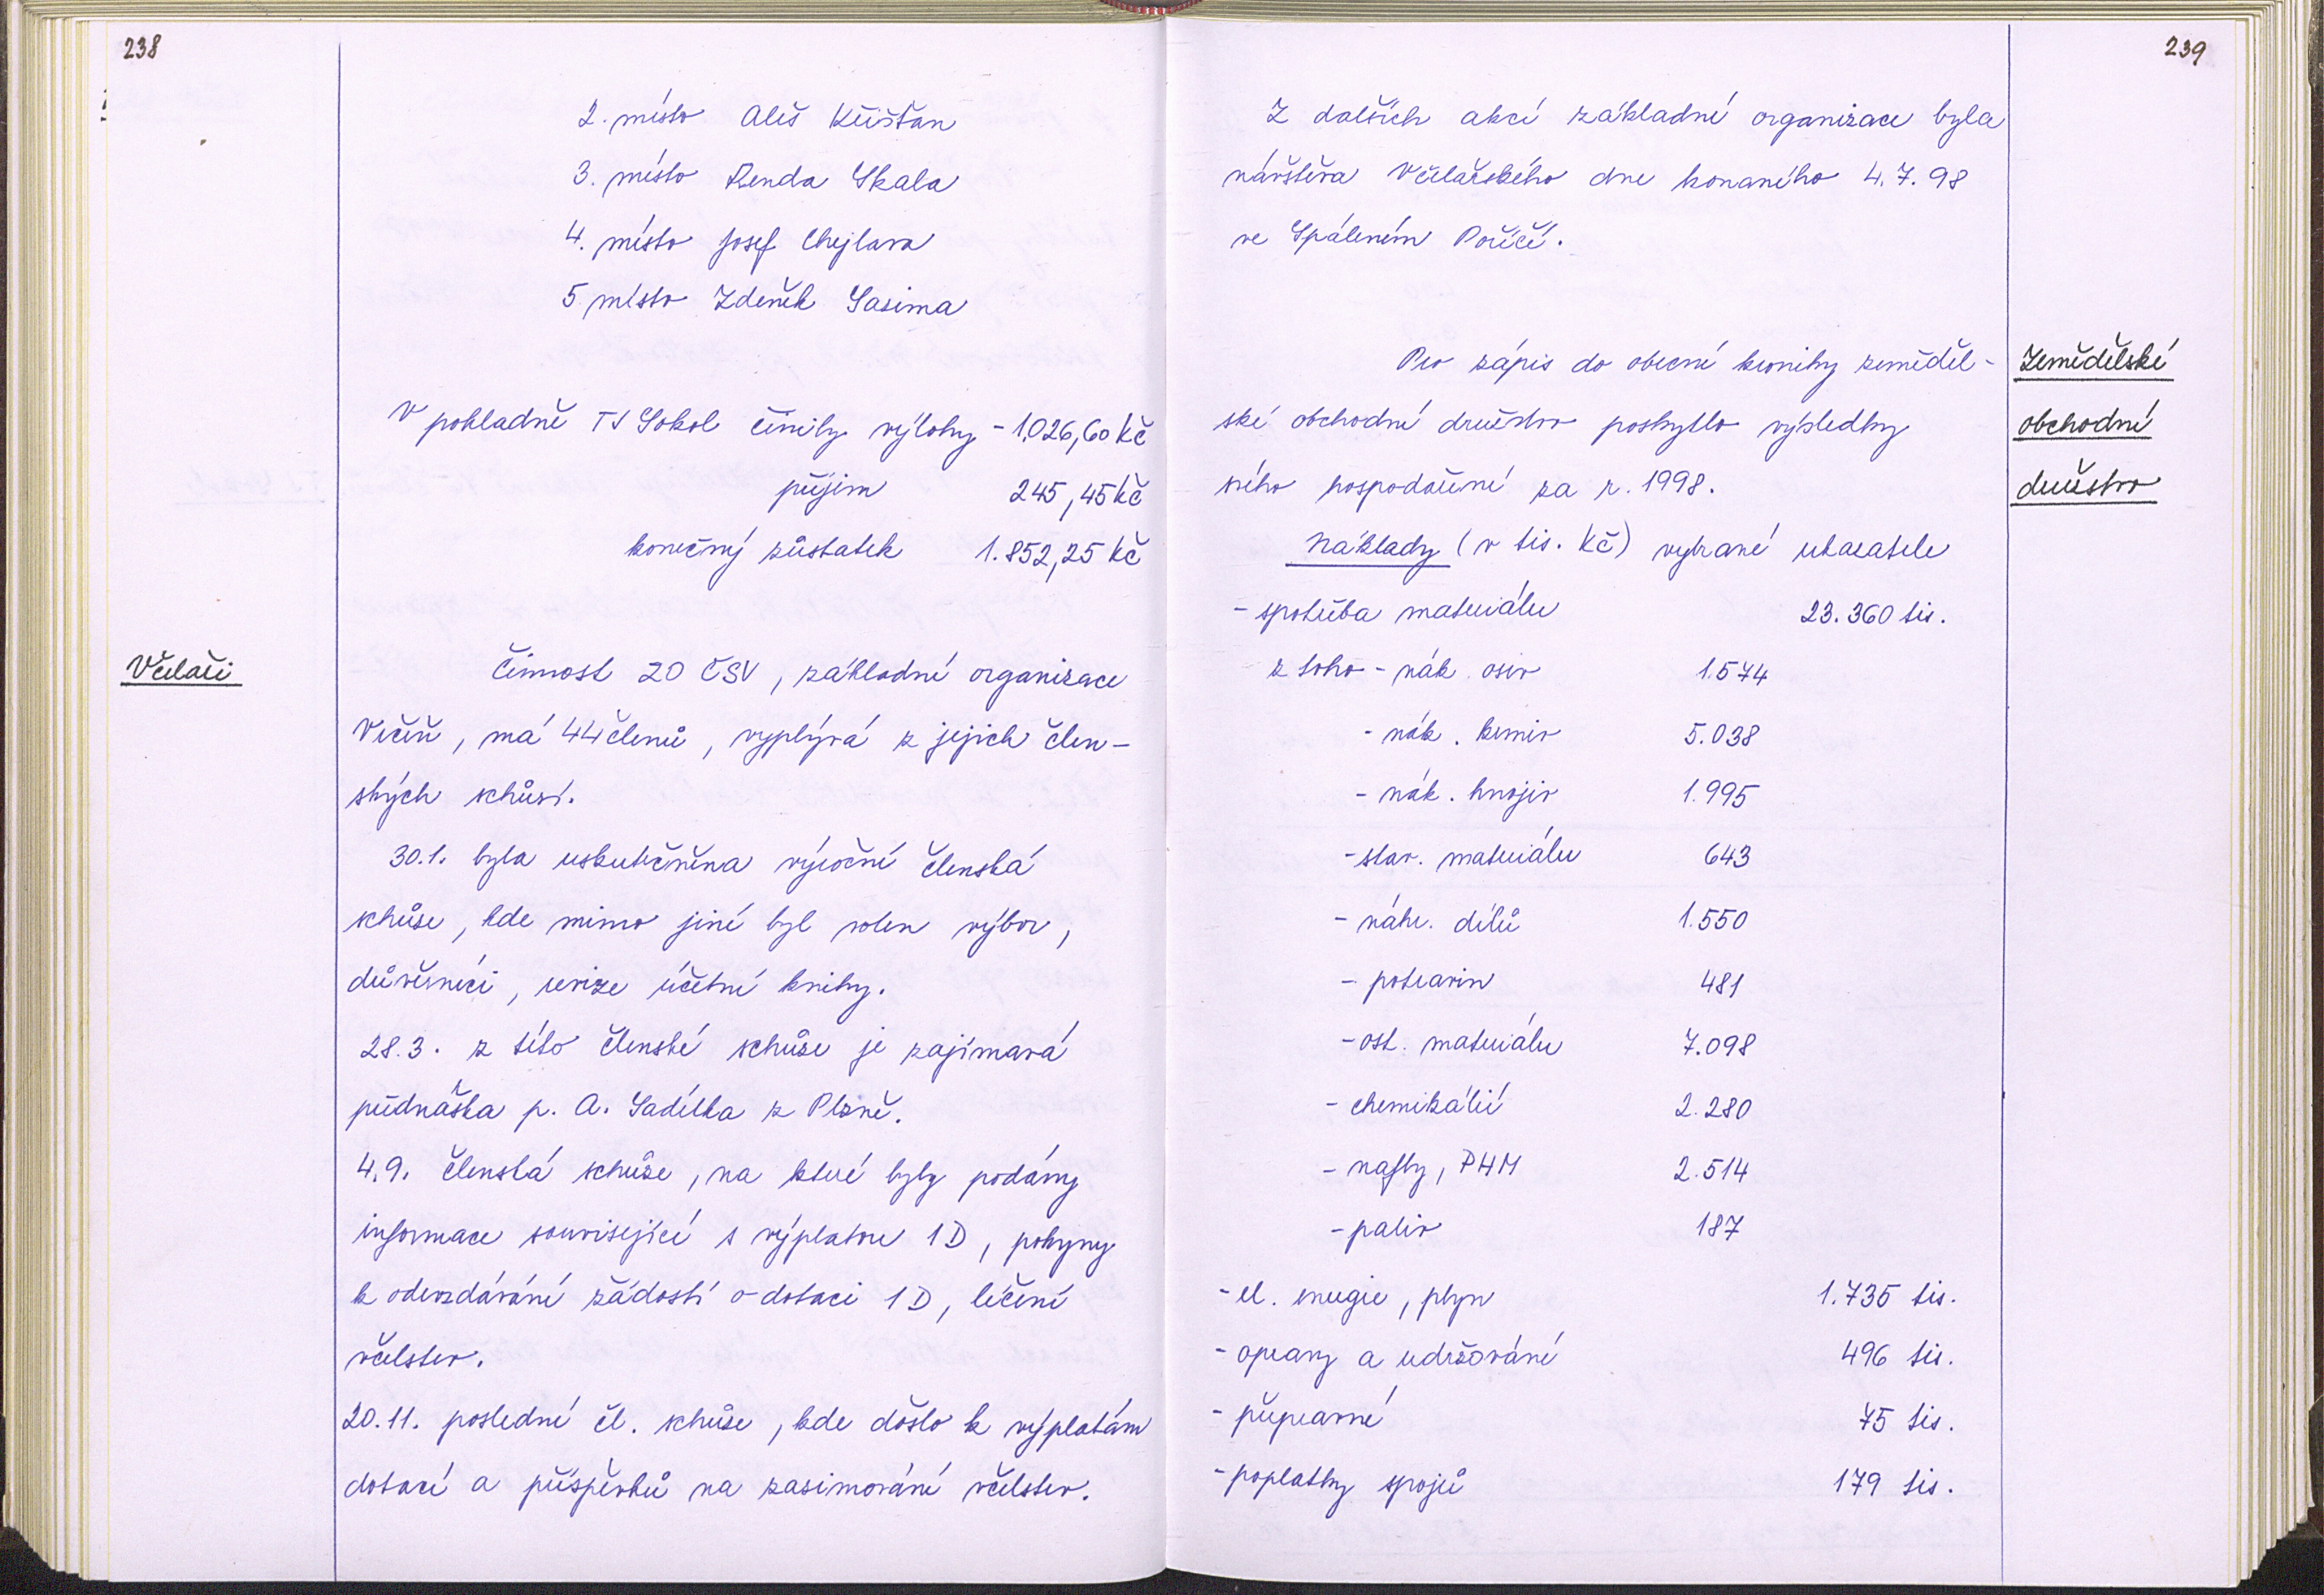 238
2. místo Aleš Křišťan
3. místo Renda Skala
4. místo Josef Chejlava
5 místo Zdeněk Sasima
V pokladně TJ Sokol činily výlohy - 1.026,60 Kč
příjem 245,45 Kč
konečný zůstatek 1.852,25 Kč
Včelaři
Činnost ZO ČSV, základní organizace
Vičín, má 44 členů, vyplývá z jejich člen-
ských schůzí.
30.1. byla uskutečněna výroční členská
schůze, kde mimo jiné byl volen výbor,
důvěrníci, revize účetní knihy.
28.3. z této členské schůze je zajímavá
přednáška p. A. Sadílka z Plzně.
4.9. členská schůze, na které byly podány
informace související s výplatou 1D, pokyny
k odevzdávání žádostí o dotaci 1D, léčení
včelstev.
20.11. poslední čl. schůze, kde došlo k výplatám
dotací a příspěvků na zazimování včelstev.
239
Z dalších akcí základní organizace byla
návštěva Včelařského dne konaného 4.7.98
ve Spáleném Poříčí.
Zemědělské
obchodní
družstvo
Pro zápis do obecní kroniky zeměděl-
ské obchodní družstvo poskytlo výsledky
svého hospodaření za r. 1998.
Náklady (v tis. Kč) vybrané ukazatele
- spotřeba materiálu 23.360 tis.
z toho - nák. osiv 1.574
- nák. krmiv 5.038
- nák. hnojiv 1.995
- stav. materiálu 643
- náhr. dílů 1.550
- potravin 481
- ost. materiálu 7.098
- chemikálií 2.280
- nafty, PHM 2.514
- paliv 187
- el. energie, plyn 1.735 tis.
- opravy a udržování 496 tis.
- přepravné 75 tis.
- poplatky spojů 179 tis.